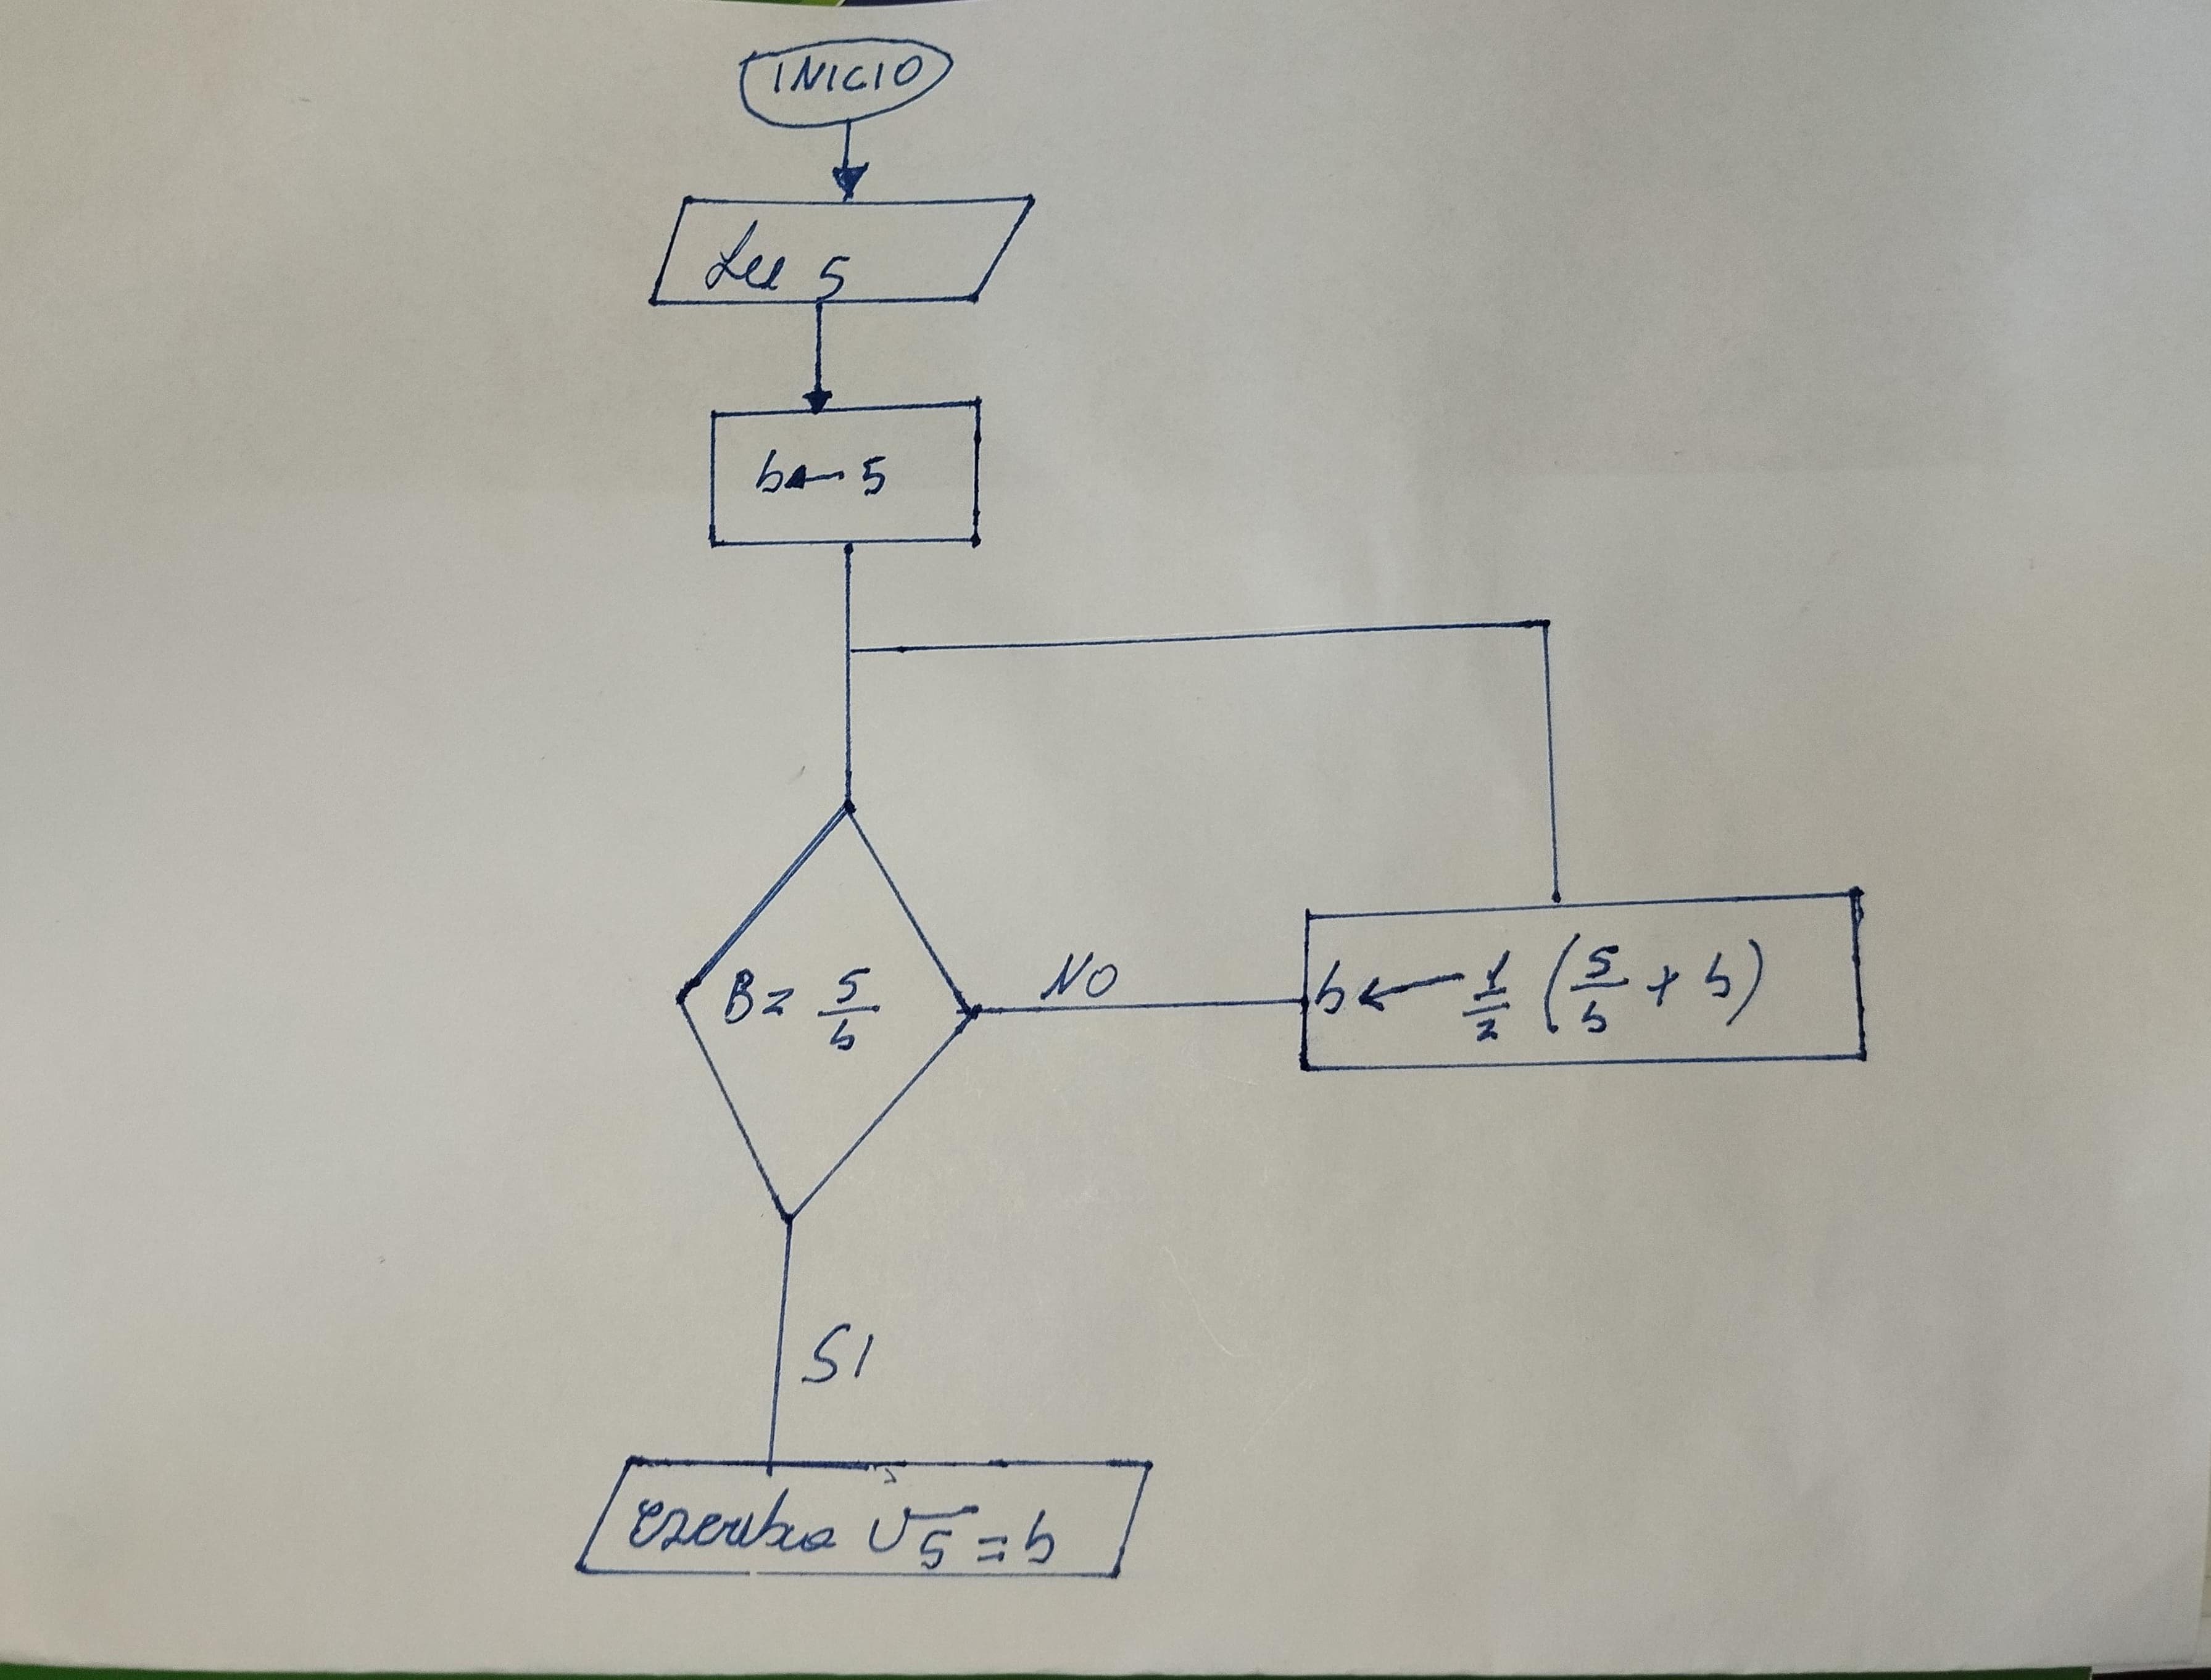 INICIO
Lee 5
b ← 5
B = 5/b
NO
b ← 1/2 (5/b + b)
SI
escriba √5 = b